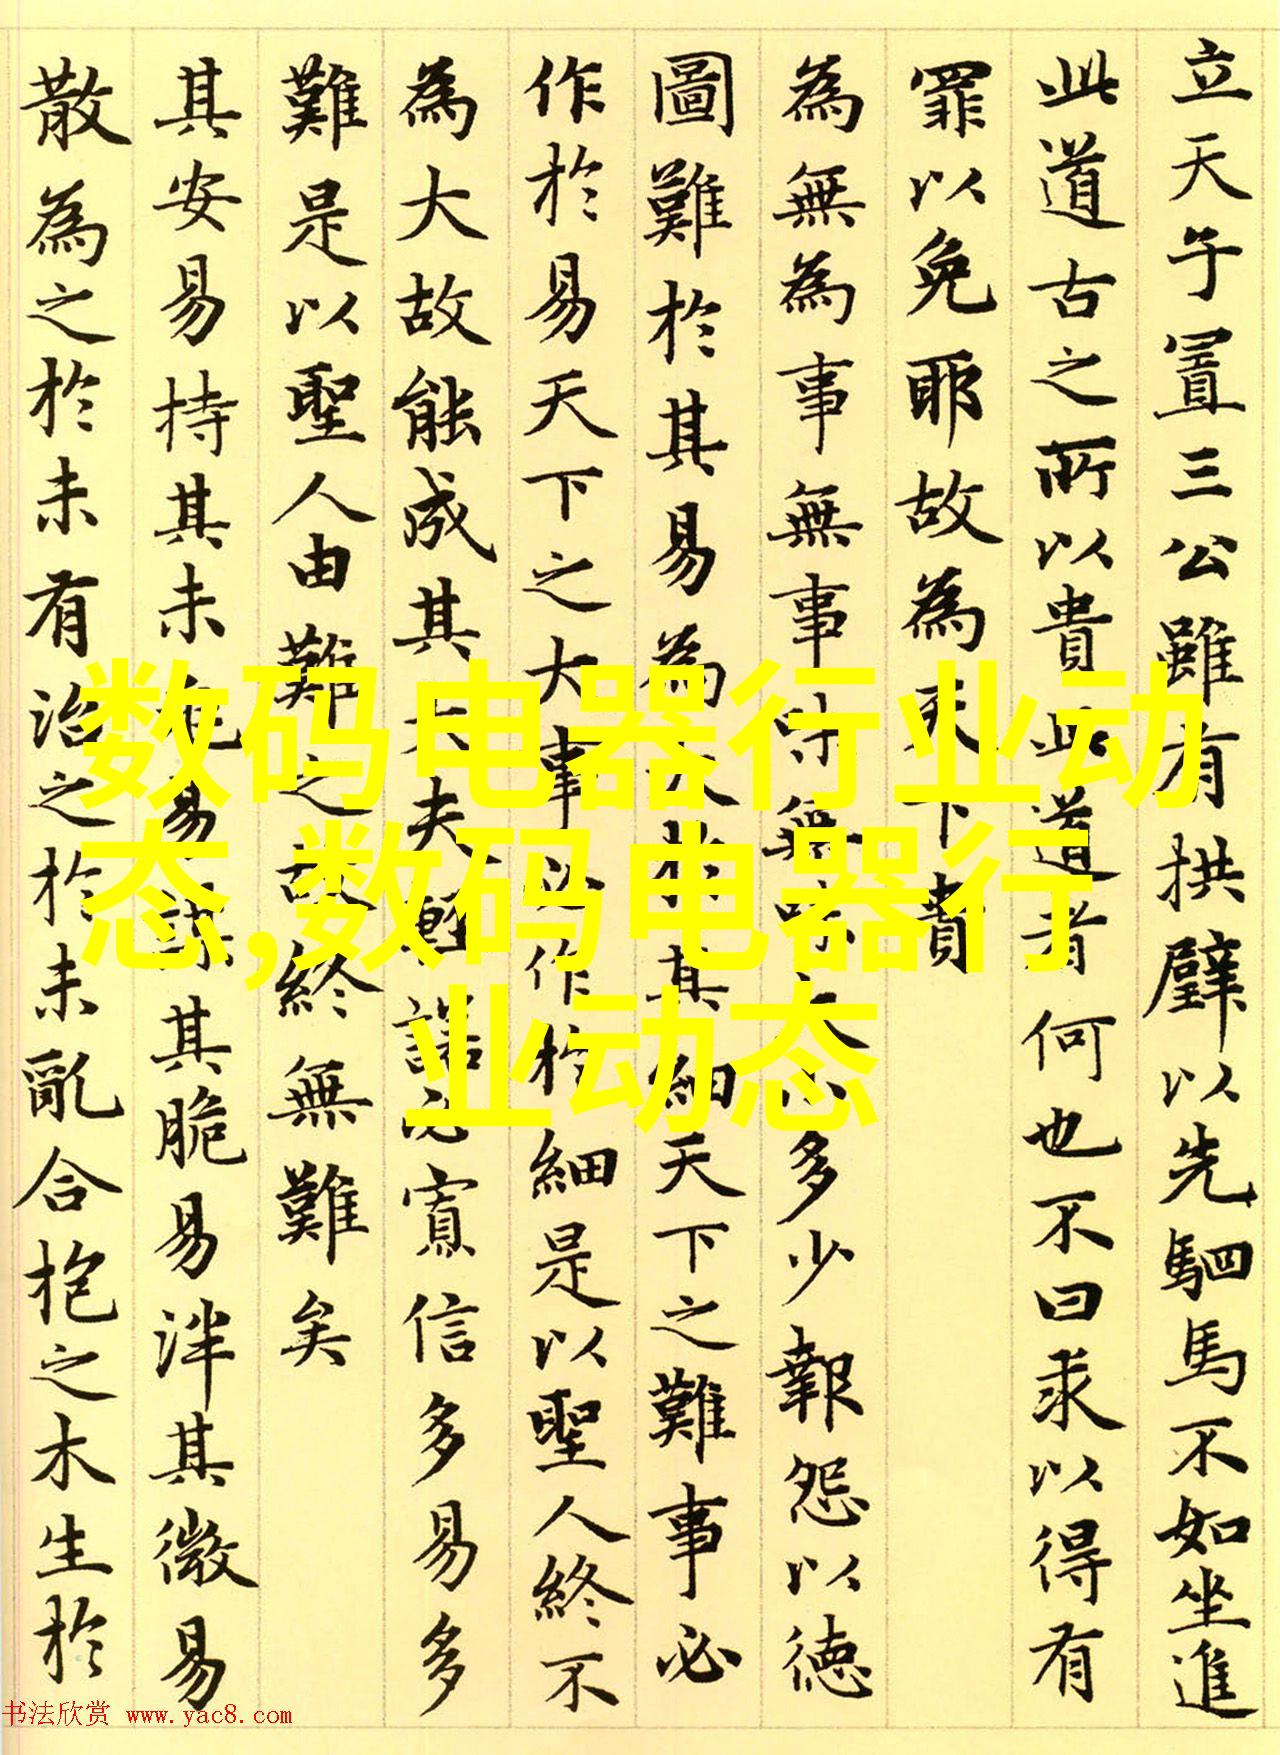 立天子置三公雖有拱璧以先駟馬不如坐進
此道古之所以貴此道者何也不曰求以得有
罪以免耶故為天下貴
為無為事無事味無味大小多少報怨以德
圖難於其易為大於其細天下之難事必
作於易天下之大事必作於細是以聖人終不
為大故能成其大夫輕諾必寡信多易多
難是以聖人由難之故終無難矣
其安易持其未兆易謀其脆易泮其微易
散為之於未有治之於未亂合抱之木生於
数码电器行业动
态,数码电器行
业动态
书法欣赏 www.yac8.com